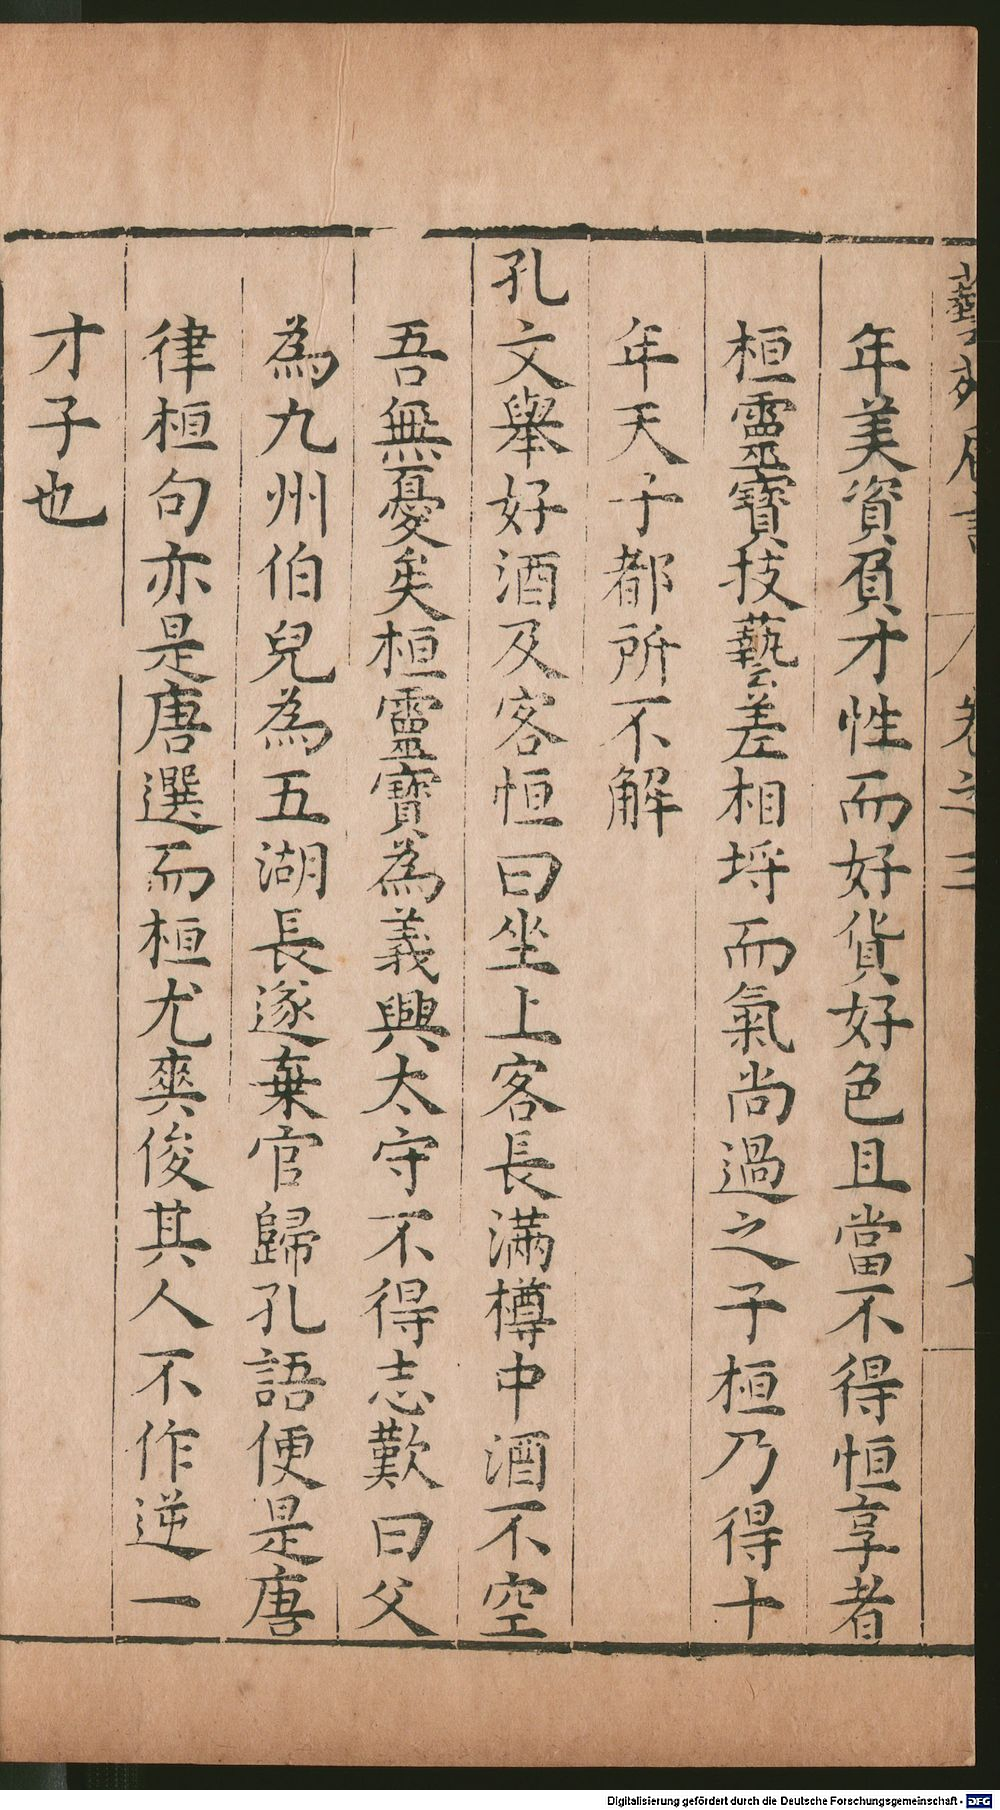 年美資負才性而好貨好色且當不得恒享者
桓靈寶技藝差相埒而氣尚過之子桓乃得十
年天子都所不解
孔文舉好酒及客恒曰坐上客長滿樽中酒不空
吾無憂矣桓靈寶為義興太守不得志歎曰父
為九州伯兒為五湖長遂棄官歸孔語便是唐
律桓句亦是唐選而桓尤爽俊其人不作逆一
才子也
卷之三
Digitalisierung gefördert durch die Deutsche Forschungsgemeinschaft - DFG